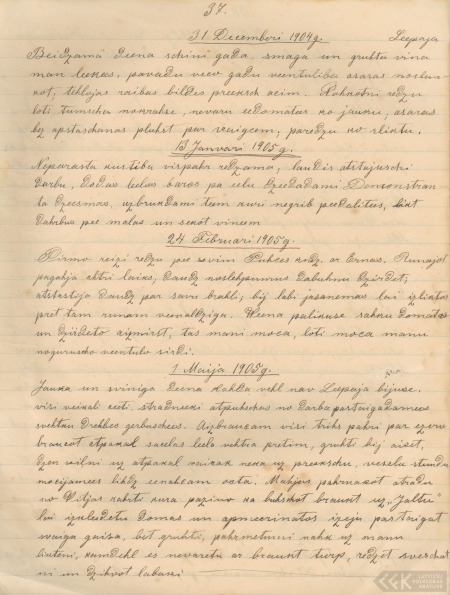 37.
31 Decemberī 1904g. Leepaja
Beidzamā deena schini gadā, smaga un gruhta viņa
man leekas, pavadu veco gadu veentulibā asaras noslau-
kot, tehlojas raibas bildes preeksch azim. Nahkotni redzu
loti tumschu nokrahsu, nevaru eedomatees no jauku, asaras
bez apstaschanas pluhst par vaigeem, paredzu ko sliktu.
13 Janvarī 1905g.
Neparasta kustiba vispahr redzama, laudis atstajuschi
darbu, dodas leelos baros pa eelu dzeedadami Demonstran-
ta dzeesmas, uzbrukdami tam kuri negrib peedalitees,
dahrbus pee malas un sekot vineem
24 Februarī 1905g.
Pirmo reizi redzu pee sevim Pukces kdz. ar Ernas. Runajot
pagahja ahtri laiks, daudz noslehpumus dabuhnu dzirdet,
atstahstija daudz par savu brahli; bij labi jasanemas lai izliktos
pret tam runam veenaldziga. Weena palikuse sahku domatas
un dzirdeto aizmirst, tas mani moca, loti moca manu
nogurušho veentulo sirdi.
1 Maijā 1905g.
Jauka un sviniga deena kahda vehl nav Leepaja bijuse.
visi veikali ceeti. strahdneeki atpuhschas no darba pastaigadamees
svehtku drehbes gehrbuschees. Aizbraucam visi trihs pahri par ezeru
braucot atpakal sacelas leels vehtra pretim, gruhti bij aiset,
dzen vilni uz atpakal vairak neka uz preekschu, veselu stundu
mocijamees lihdz eenahcam osta. Mahjas pahrnakot atradu
no Vitjas rakstu kura pazino ka buhschot braukt uz "Jaltu"
lai izkliedetu domas un apmeerinatos izeju pastaigat
svaiga gaisa, bet gruhti, pahrmetumi nahk uz manu
kamdehl es nevaretu ar braukt turp, redzet sveschat-
ni un dzihvot labaski